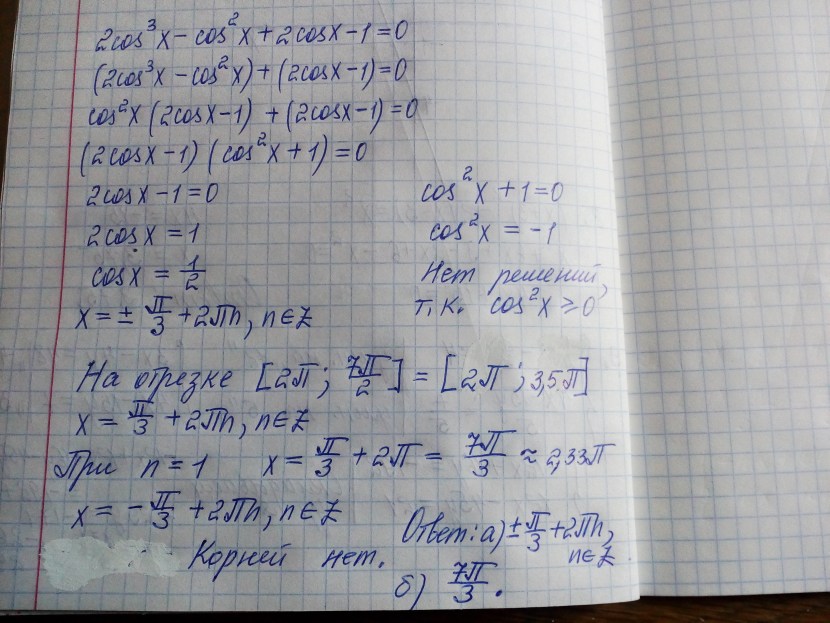 2cos³x - cos²x + 2cosx - 1 = 0
(2cos³x - cos²x) + (2cosx - 1) = 0
cos²x (2cosx - 1) + (2cosx - 1) = 0
(2cosx - 1) (cos²x + 1) = 0
2cosx - 1 = 0
2cosx = 1
cosx = 1/2
x = ± π/3 + 2πn, n∈Z
cos²x + 1 = 0
cos²x = -1
Нет решений,
т.к. cos²x ≥ 0
На отрезке [2π; 7π/2] = [2π; 3,5π]
x = π/3 + 2πn, n∈Z
При n = 1 x = π/3 + 2π = 7π/3 ≈ 2,33π
x = - π/3 + 2πn, n∈Z
Корней нет.
Ответ: а) ± π/3 + 2πn,
n∈Z
б) 7π/3.